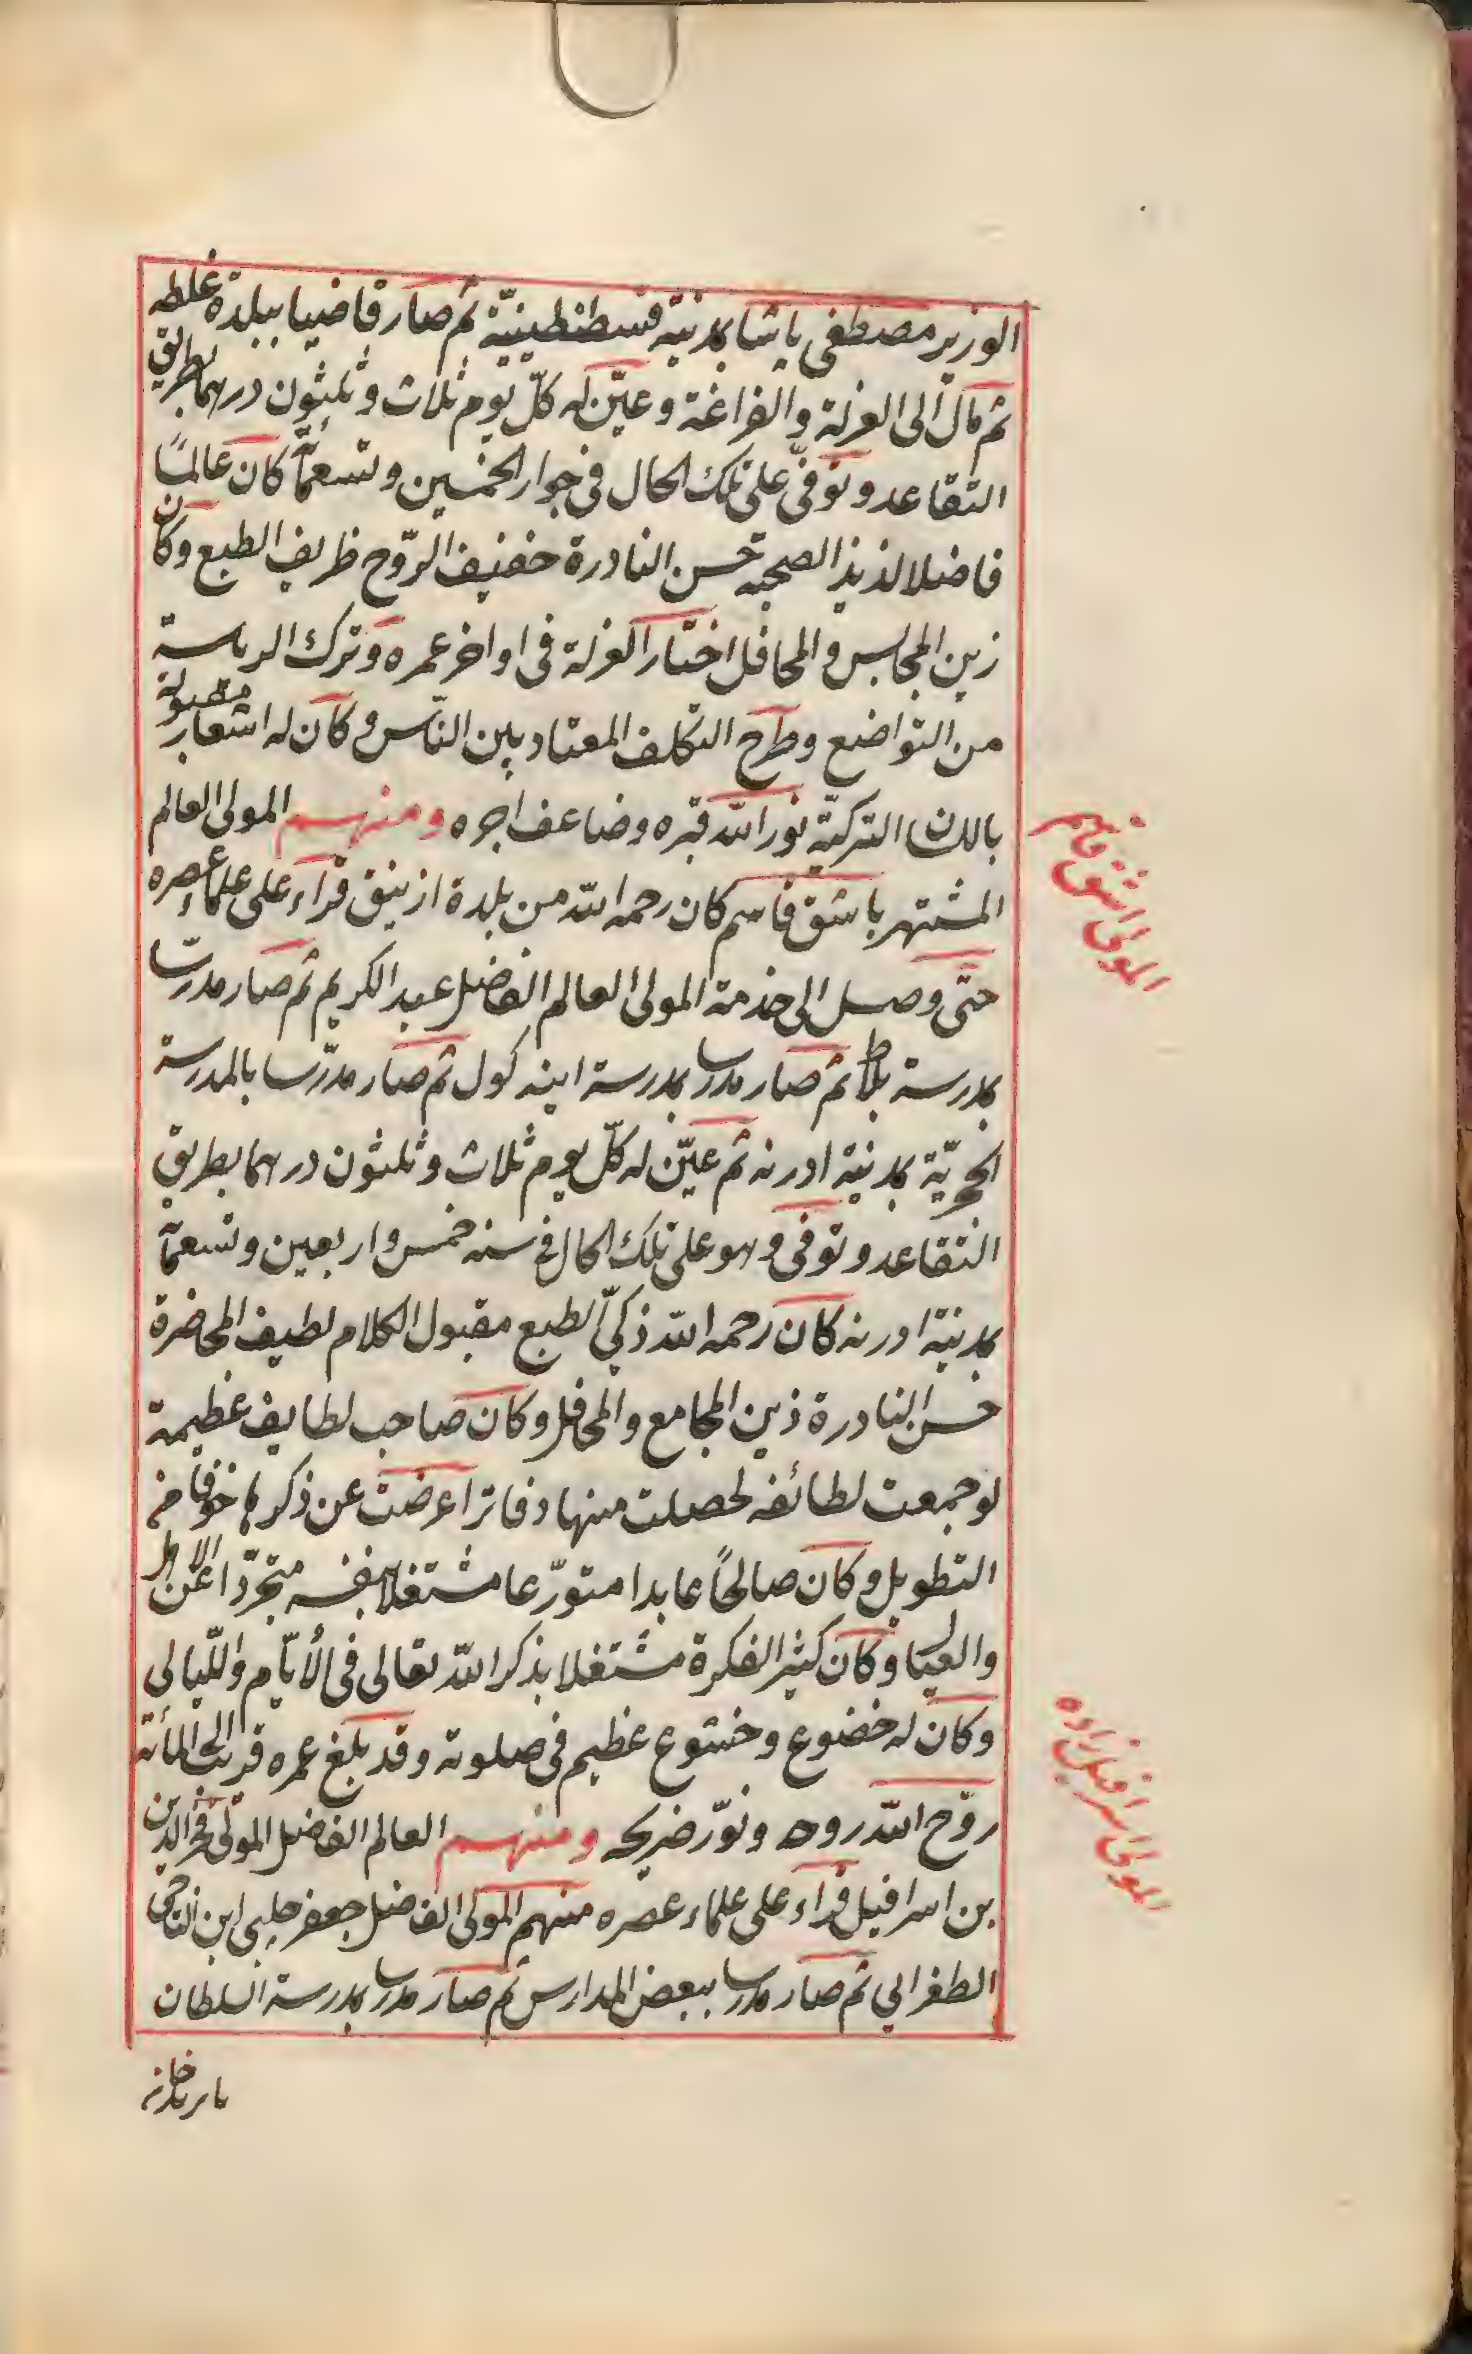 الوزير مصطفى پاشا بمدنية قسطنطينيّة ثم صار قاضيا ببلدة غلطه
ثم مال الى العزلة والفراغة وعيّن له كلّ يوم ثلاث وثلثون درهما بطريق
التقاعد وتوفىّ على تلك الحال فى جوار الخمسين وتسعمأة كان عالماً
فاضلا لذيذ الصحبة حسن النادرة خفيف الرّوح ظريف الطبع وكان
زين المجالس والمحافل اختار العزلة فى اواخر عمره وترك الرياسة
من التواضع وطرح التكلف المعتاد بين النّاس وكان له اشعار مقبولة
باللسان التركيّة نور الله قبره وضاعف اجره ومنهم المولى العالم
المشتهر باشق قاسم كان رحمه الله من بلدة ازنيق قراء على علماء عصره
حتّى وصل الى خدمة المولى العالم الفاضل عبد الكريم ثم صار مدرّسا
بمدرسة بلاط ثم صار مدرسا بمدرسة اينه كول ثم صار مدرّسا بالمدرسة
الحجريّة بمدنية ادرنه ثم عيّن له كلّ يوم ثلاث وثلثون درهما بطريق
التقاعد وتوفى وهو على تلك الحال فى سنه خمس واربعين وتسعمأة
بمدنية ادرنه كان رحمه الله ذكىّ الطبع مقبول الكلام لطيف المحاضرة
حسن النادرة زين المجامع والمحافل وكان صاحب لطايف عظيمة
لو جمعت لطائفه لحصلت منها دفاتر اعرضت عن ذكرها خوفا من
التطويل وكان صالحاً عابدا متورّعا مشتغلا بنفسه متجرّدا عن الاهل
والعيال وكان كثير الفكرة مشتغلا بذكر الله تعالى فى الأيّام واللّيالى
وكان له خضوع وخشوع عظيم فى صلوته وقد بلغ عمره قريبا الى المأته
روّح الله روحه ونوّر ضريحه ومنهم العالم الفاضل المولى فخر الدين
بن اسرافيل قراء على علماء عصره منهم المولى الفاضل جعفر چلبى ابن التاجى
الطغرايي ثم صار مدرسا ببعض المدارس ثم صار مدرسا بمدرسة السلطان
بايزيد خان
المولى اشق قاسم
المولى اسرافيل زاده